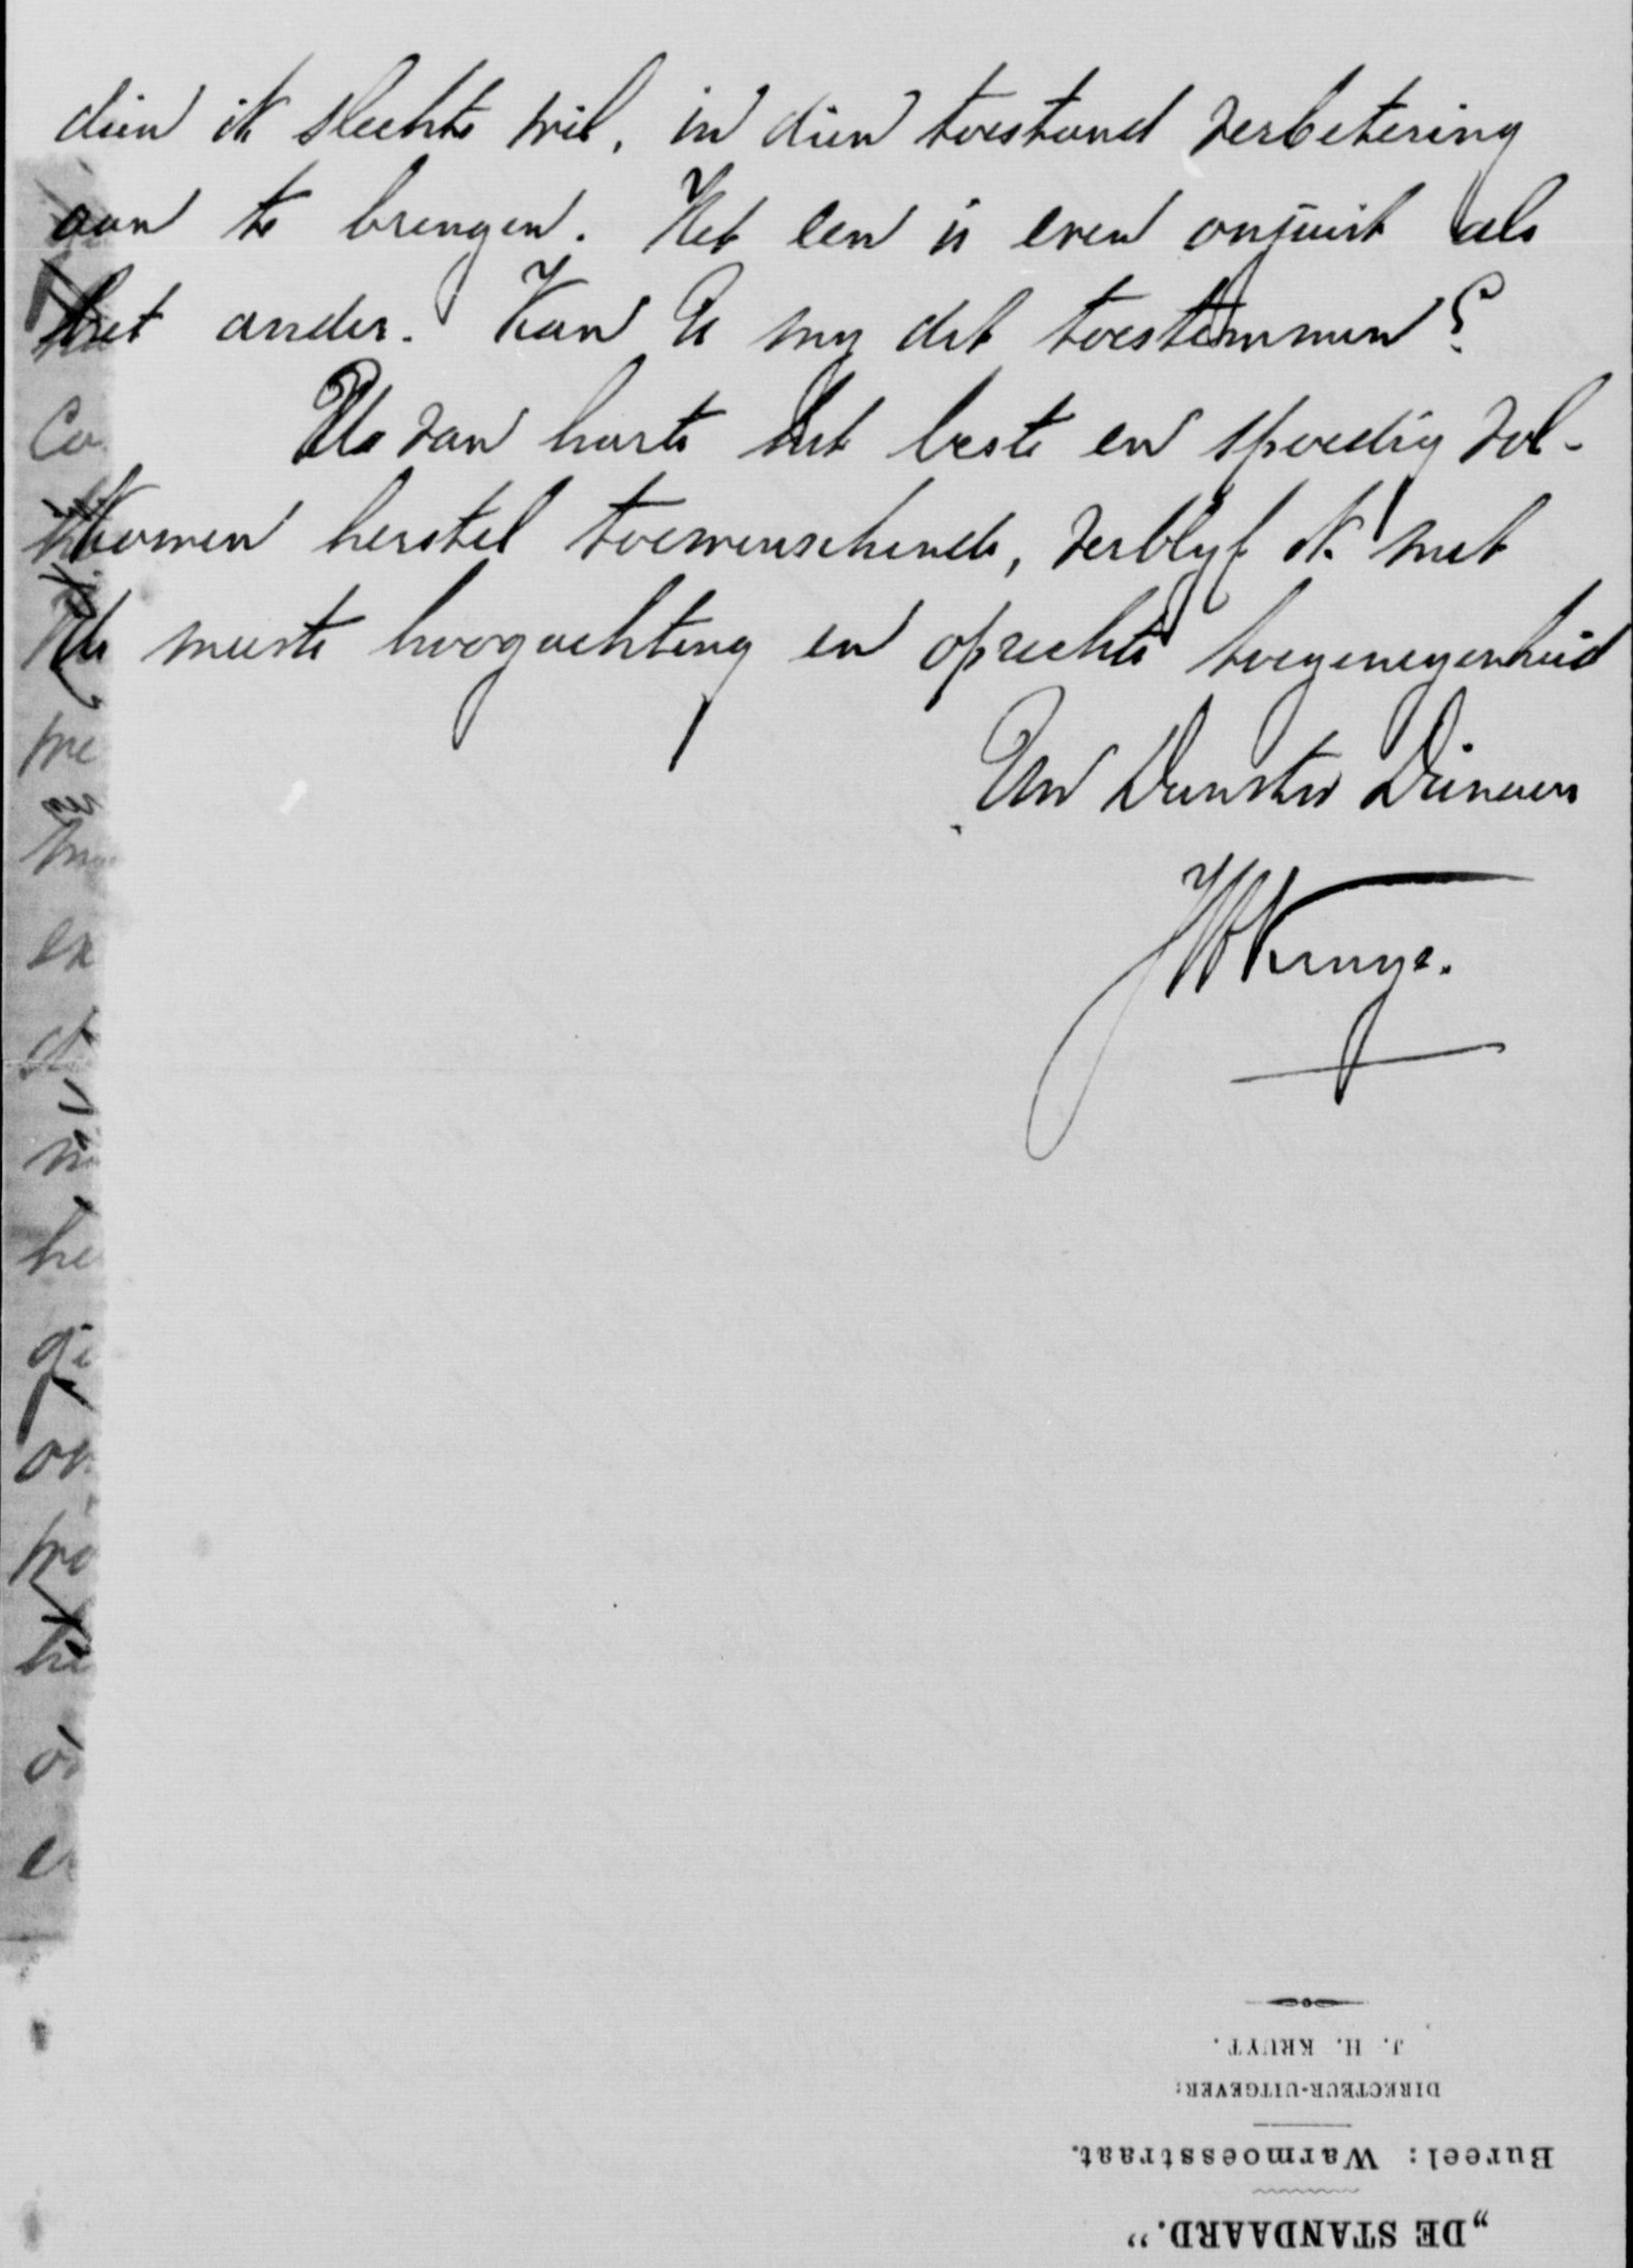 dien ik slechts wil, in dien toestand verbetering
aan te brengen. Het een is even onjuist als
het ander. Kan U my dit toestemmen?
U van harte het beste en spoedig vol-
komen herstel toewenschende, verblyf ik met
de meeste hoogachting en oprechte toegenegenheid
Uw Dienstw Dienaar
JHKruyt.
Co
me
en
he
on
„DE STANDAARD.”
Bureel: Warmoesstraat.
DIRECTEUR-UITGEVER:
J. H. KRUYT.